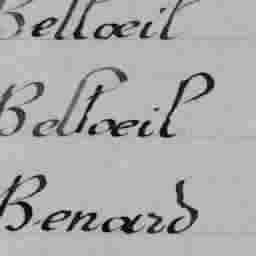 Belloeil
Belloeil
Benard